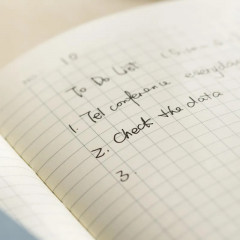 10
To Do List
1. Tel conference everyday
2. Check the data
3